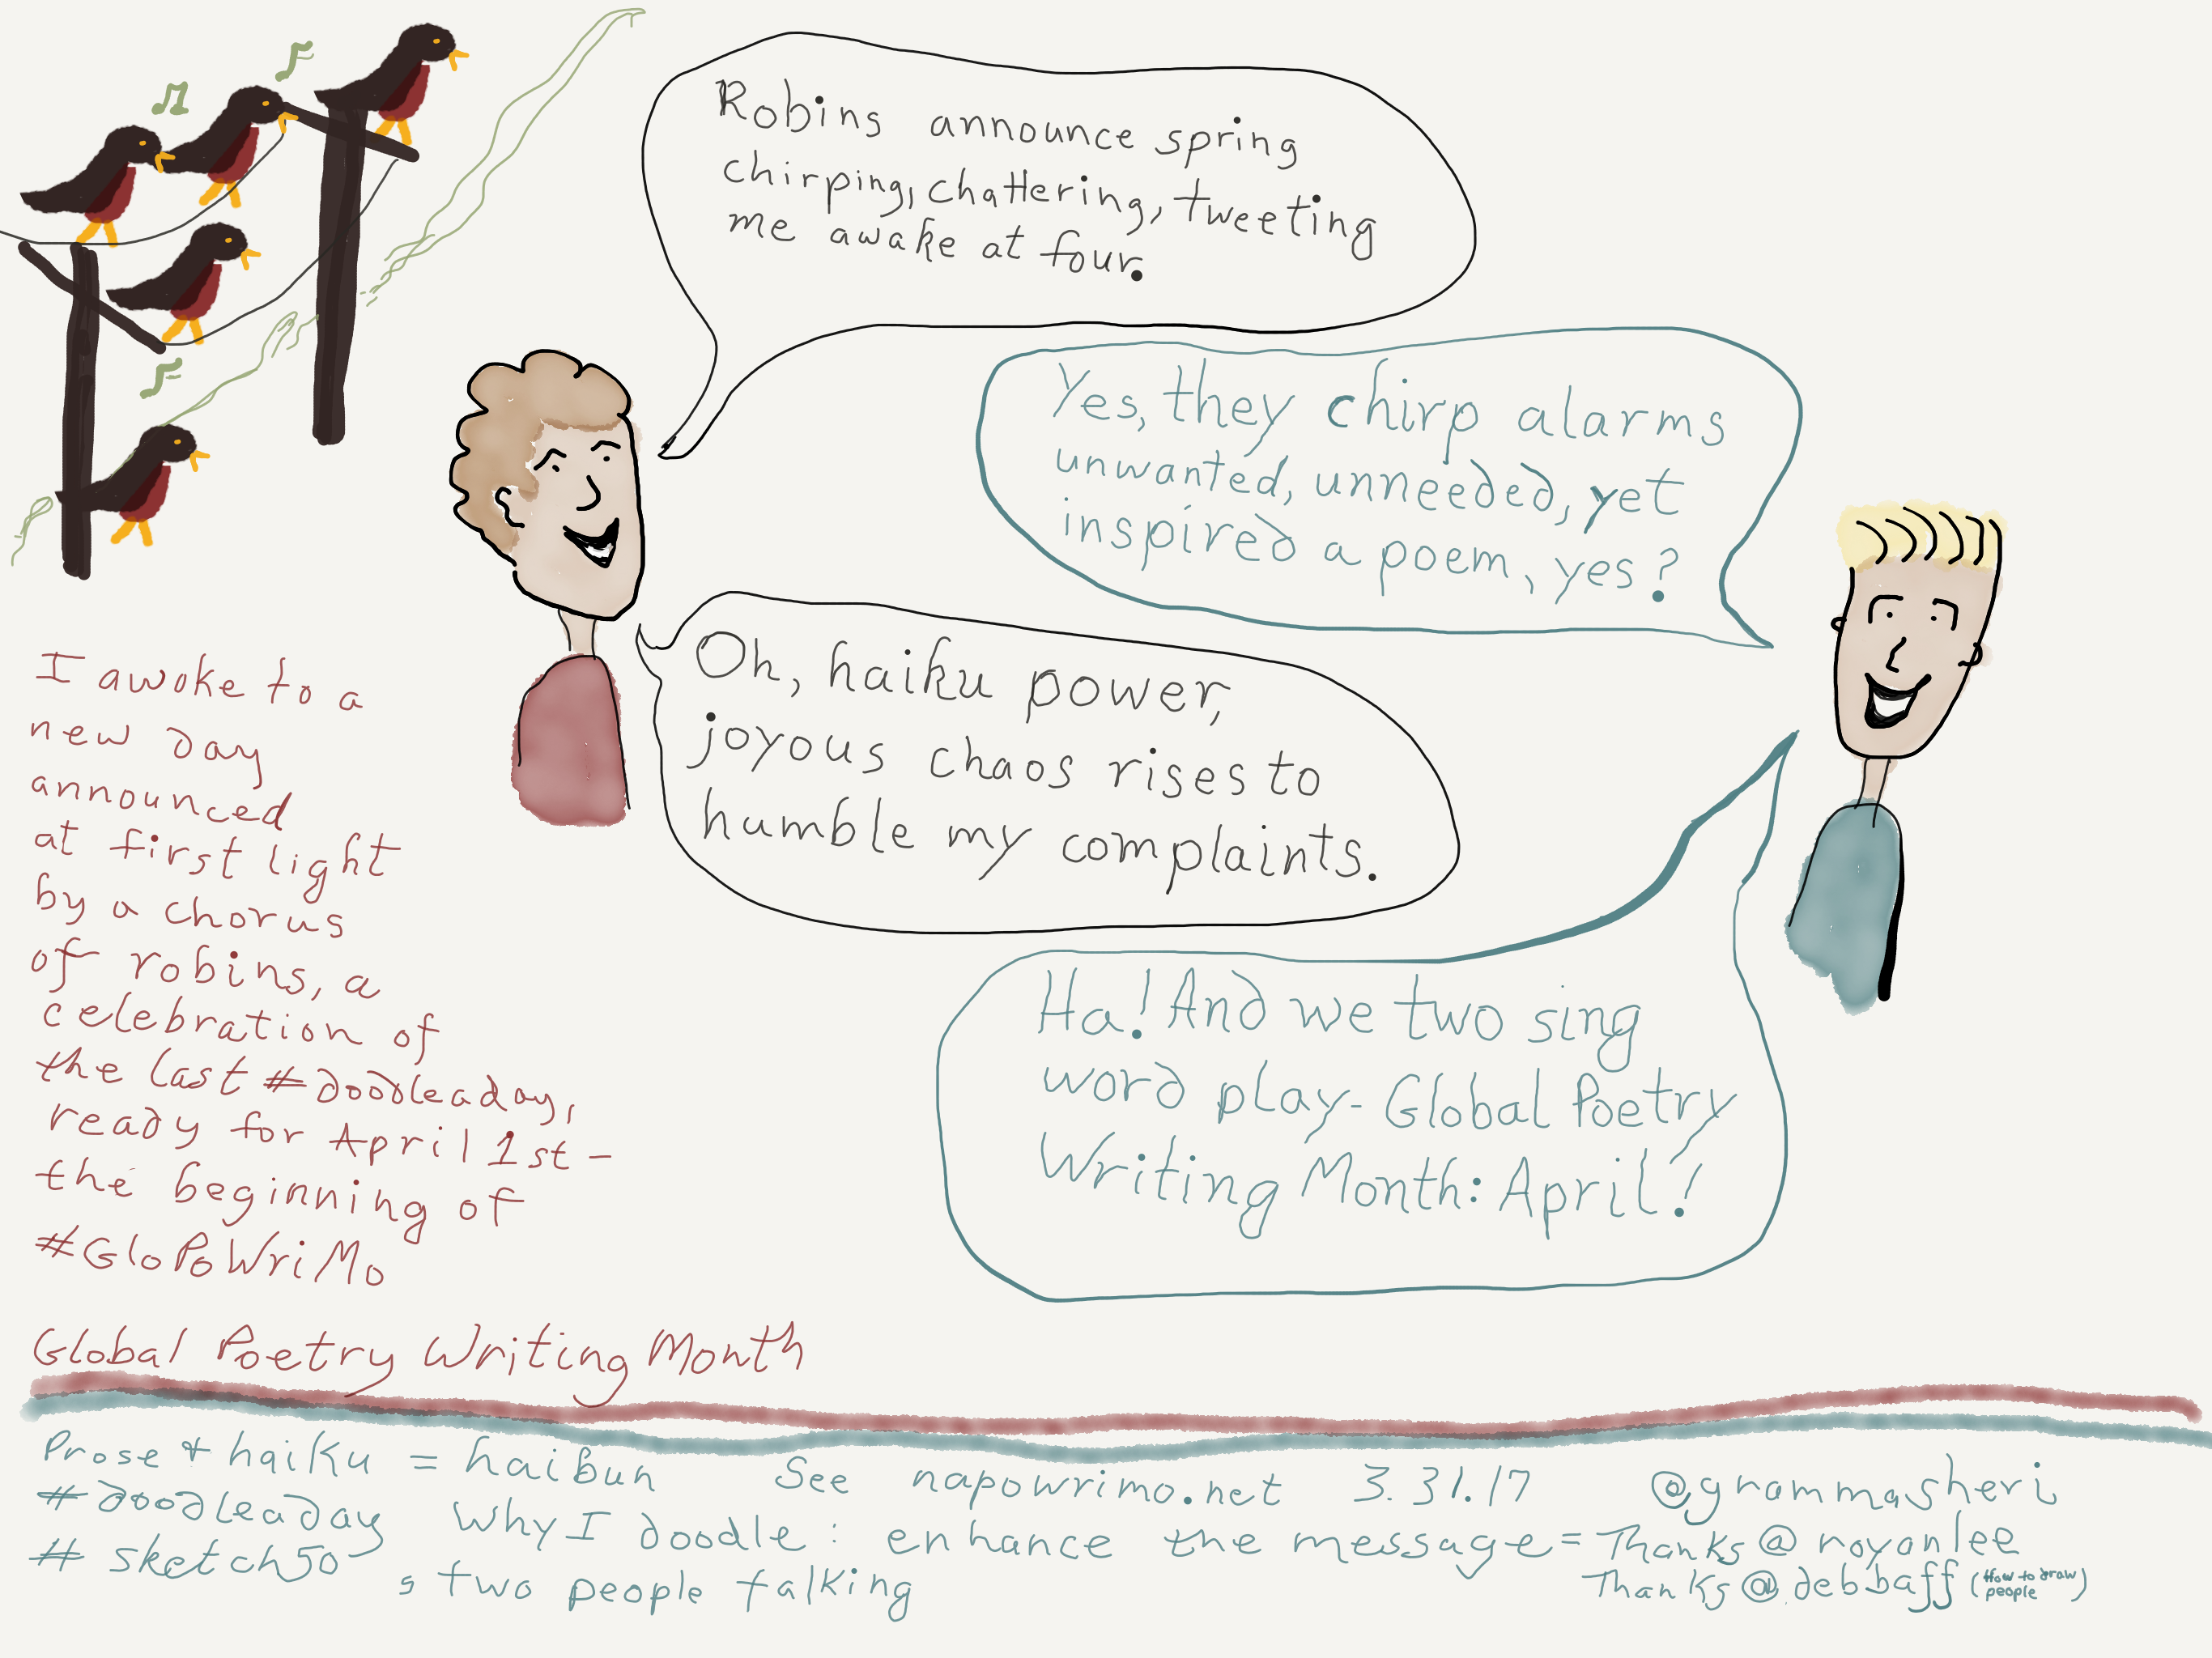 Robins announce spring
chirping, chattering, tweeting
me awake at four.
Yes, they chirp alarms
unwanted, unneeded, yet
inspired a poem, yes?
Oh, haiku power,
joyous chaos rises to
humble my complaints.
Ha! And we two sing
word play - Global Poetry
Writing Month: April!
I awoke to a
new day
announced
at first light
by a chorus
of robins, a
celebration of
the last #doodleaday,
ready for April 1st -
the beginning of
#GloPoWriMo
Global Poetry Writing Month
Prose + haiku = haibun See napowrimo.net 3.31.17 @grammasheri
#doodleaday Why I doodle: enhance the message = Thanks @royanlee
#sketch50, two people talking Thanks @debbaff (How to draw
people)